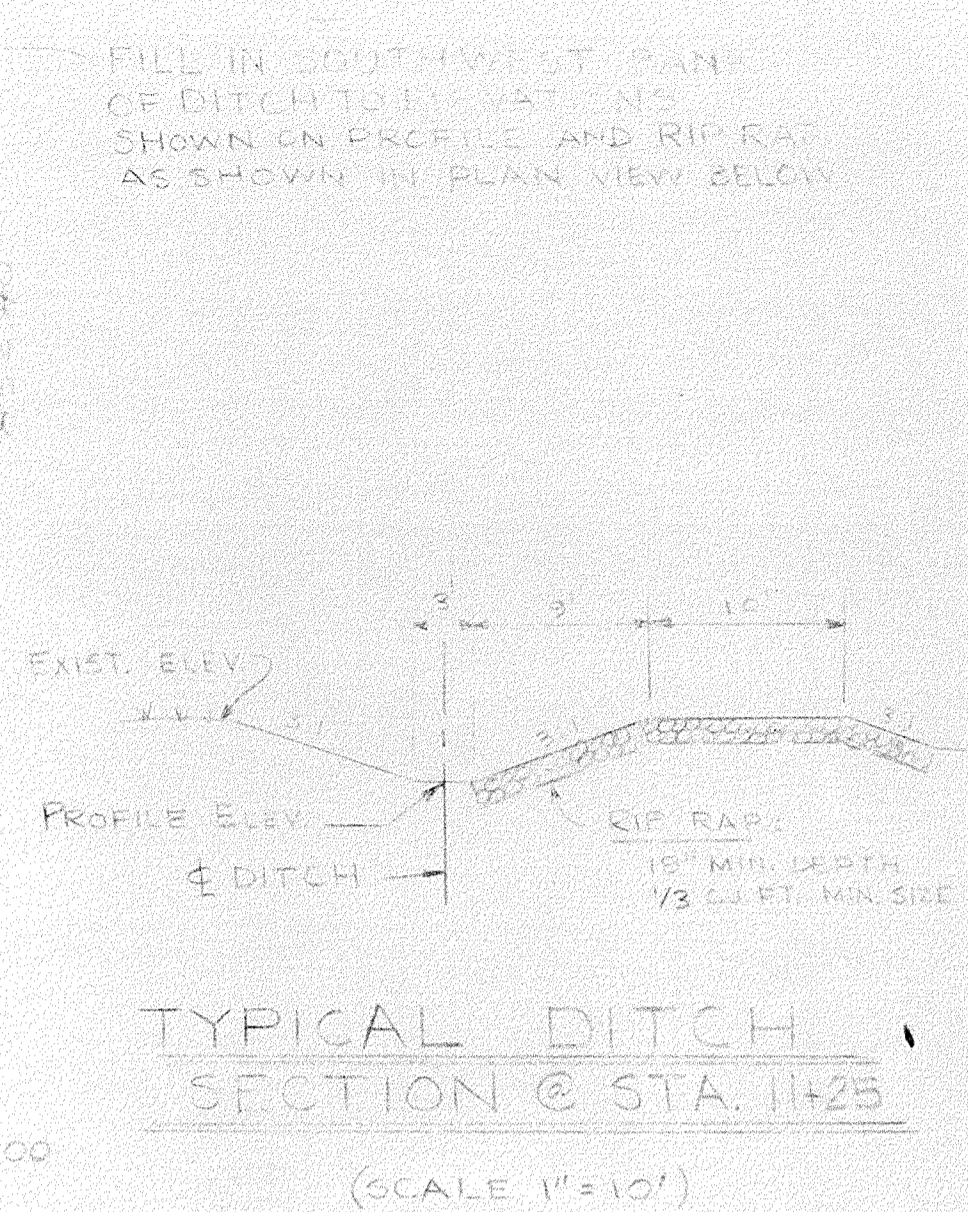 FILL IN SOUTHWEST BANK
OF DITCH TO ELEVATIONS
SHOWN ON PROFILE AND RIP RAP
AS SHOWN IN PLAN VIEW BELOW
3'
9'
10'
EXIST. ELEV
3:1
3:1
3:1
PROFILE ELEV.
RIP RAP:
℄ DITCH
18" MIN. DEPTH
1/3 CU. FT. MIN. SIZE
TYPICAL DITCH
SECTION @ STA. 11+25
00
(SCALE 1"=10')